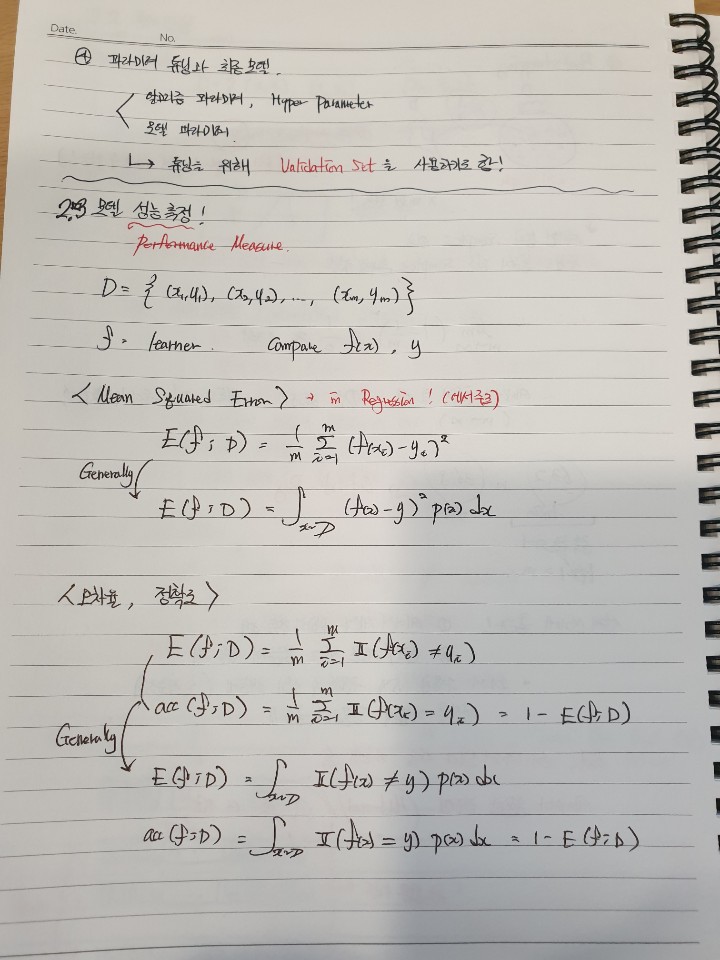 Date. No.
④ 파라미터 튜닝과 최종모델.
알고리즘 파라미터, Hyper Parameter
모델 파라미터.
↳ 튜닝을 위해 Validation Set을 사용하기도 함!
2.3 모델 성능측정!
Performance Measure.
D = { (x₁,y₁), (x₂,y₂), ..., (xₘ, yₘ) }
f = learner. Compare f(x), y
<Mean Squared Error> → in Regression! (에서주로)
E(f; D) = 1/m Σᵢ₌₁ᵐ (f(xᵢ) - yᵢ)²
Generally
E(f; D) = ∫ₓ~D (f(x) - y)² p(x) dx
<오차율, 정확도>
E(f; D) = 1/m Σᵢ₌₁ᵐ 𝕀(f(xᵢ) ≠ yᵢ)
acc(f; D) = 1/m Σᵢ₌₁ᵐ 𝕀(f(xᵢ) = yᵢ) = 1 - E(f; D)
Generally
E(f; D) = ∫ₓ~D 𝕀(f(x) ≠ y) p(x) dx
acc(f; D) = ∫ₓ~D 𝕀(f(x) = y) p(x) dx = 1 - E(f; D)